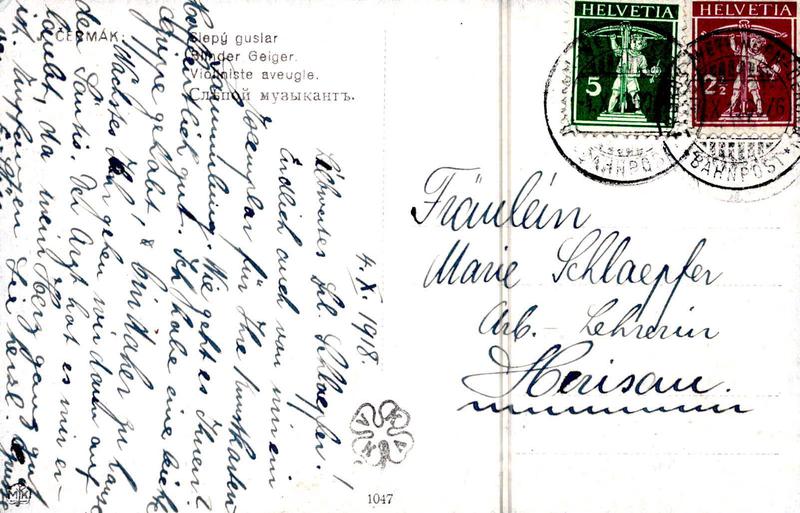 J. ČERMÁK:
Slepý guslar
Blinder Geiger.
Violoniste aveugle.
Слѣпой музыкантъ.
4. X. 1918.
Liebwertes Frl. Schlaepfer!
Endlich auch von mir ein
Exemplar für Ihre Kunstkarten-
sammlung. Wie geht es Ihnen?
Hoffentlich gut. Ich habe eine leichte
Grippe gehabt, & bin daher zu Hause
Nächstes Jahr gehen wir dann auf
den Säntis. Der Arzt hat es mir er-
laubt, da mein Herz ganz gut
ist.
Sie herzl.
HELVETIA
5
HELVETIA
2½
BAHNPOST
BAHNPOST
Fräulein
Marie Schlaepfer
Arb.-Lehrerin
Herisau.
1047